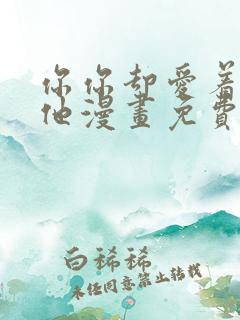 你你却爱着
他漫畫免費
白稀稀
未经同意禁止转载